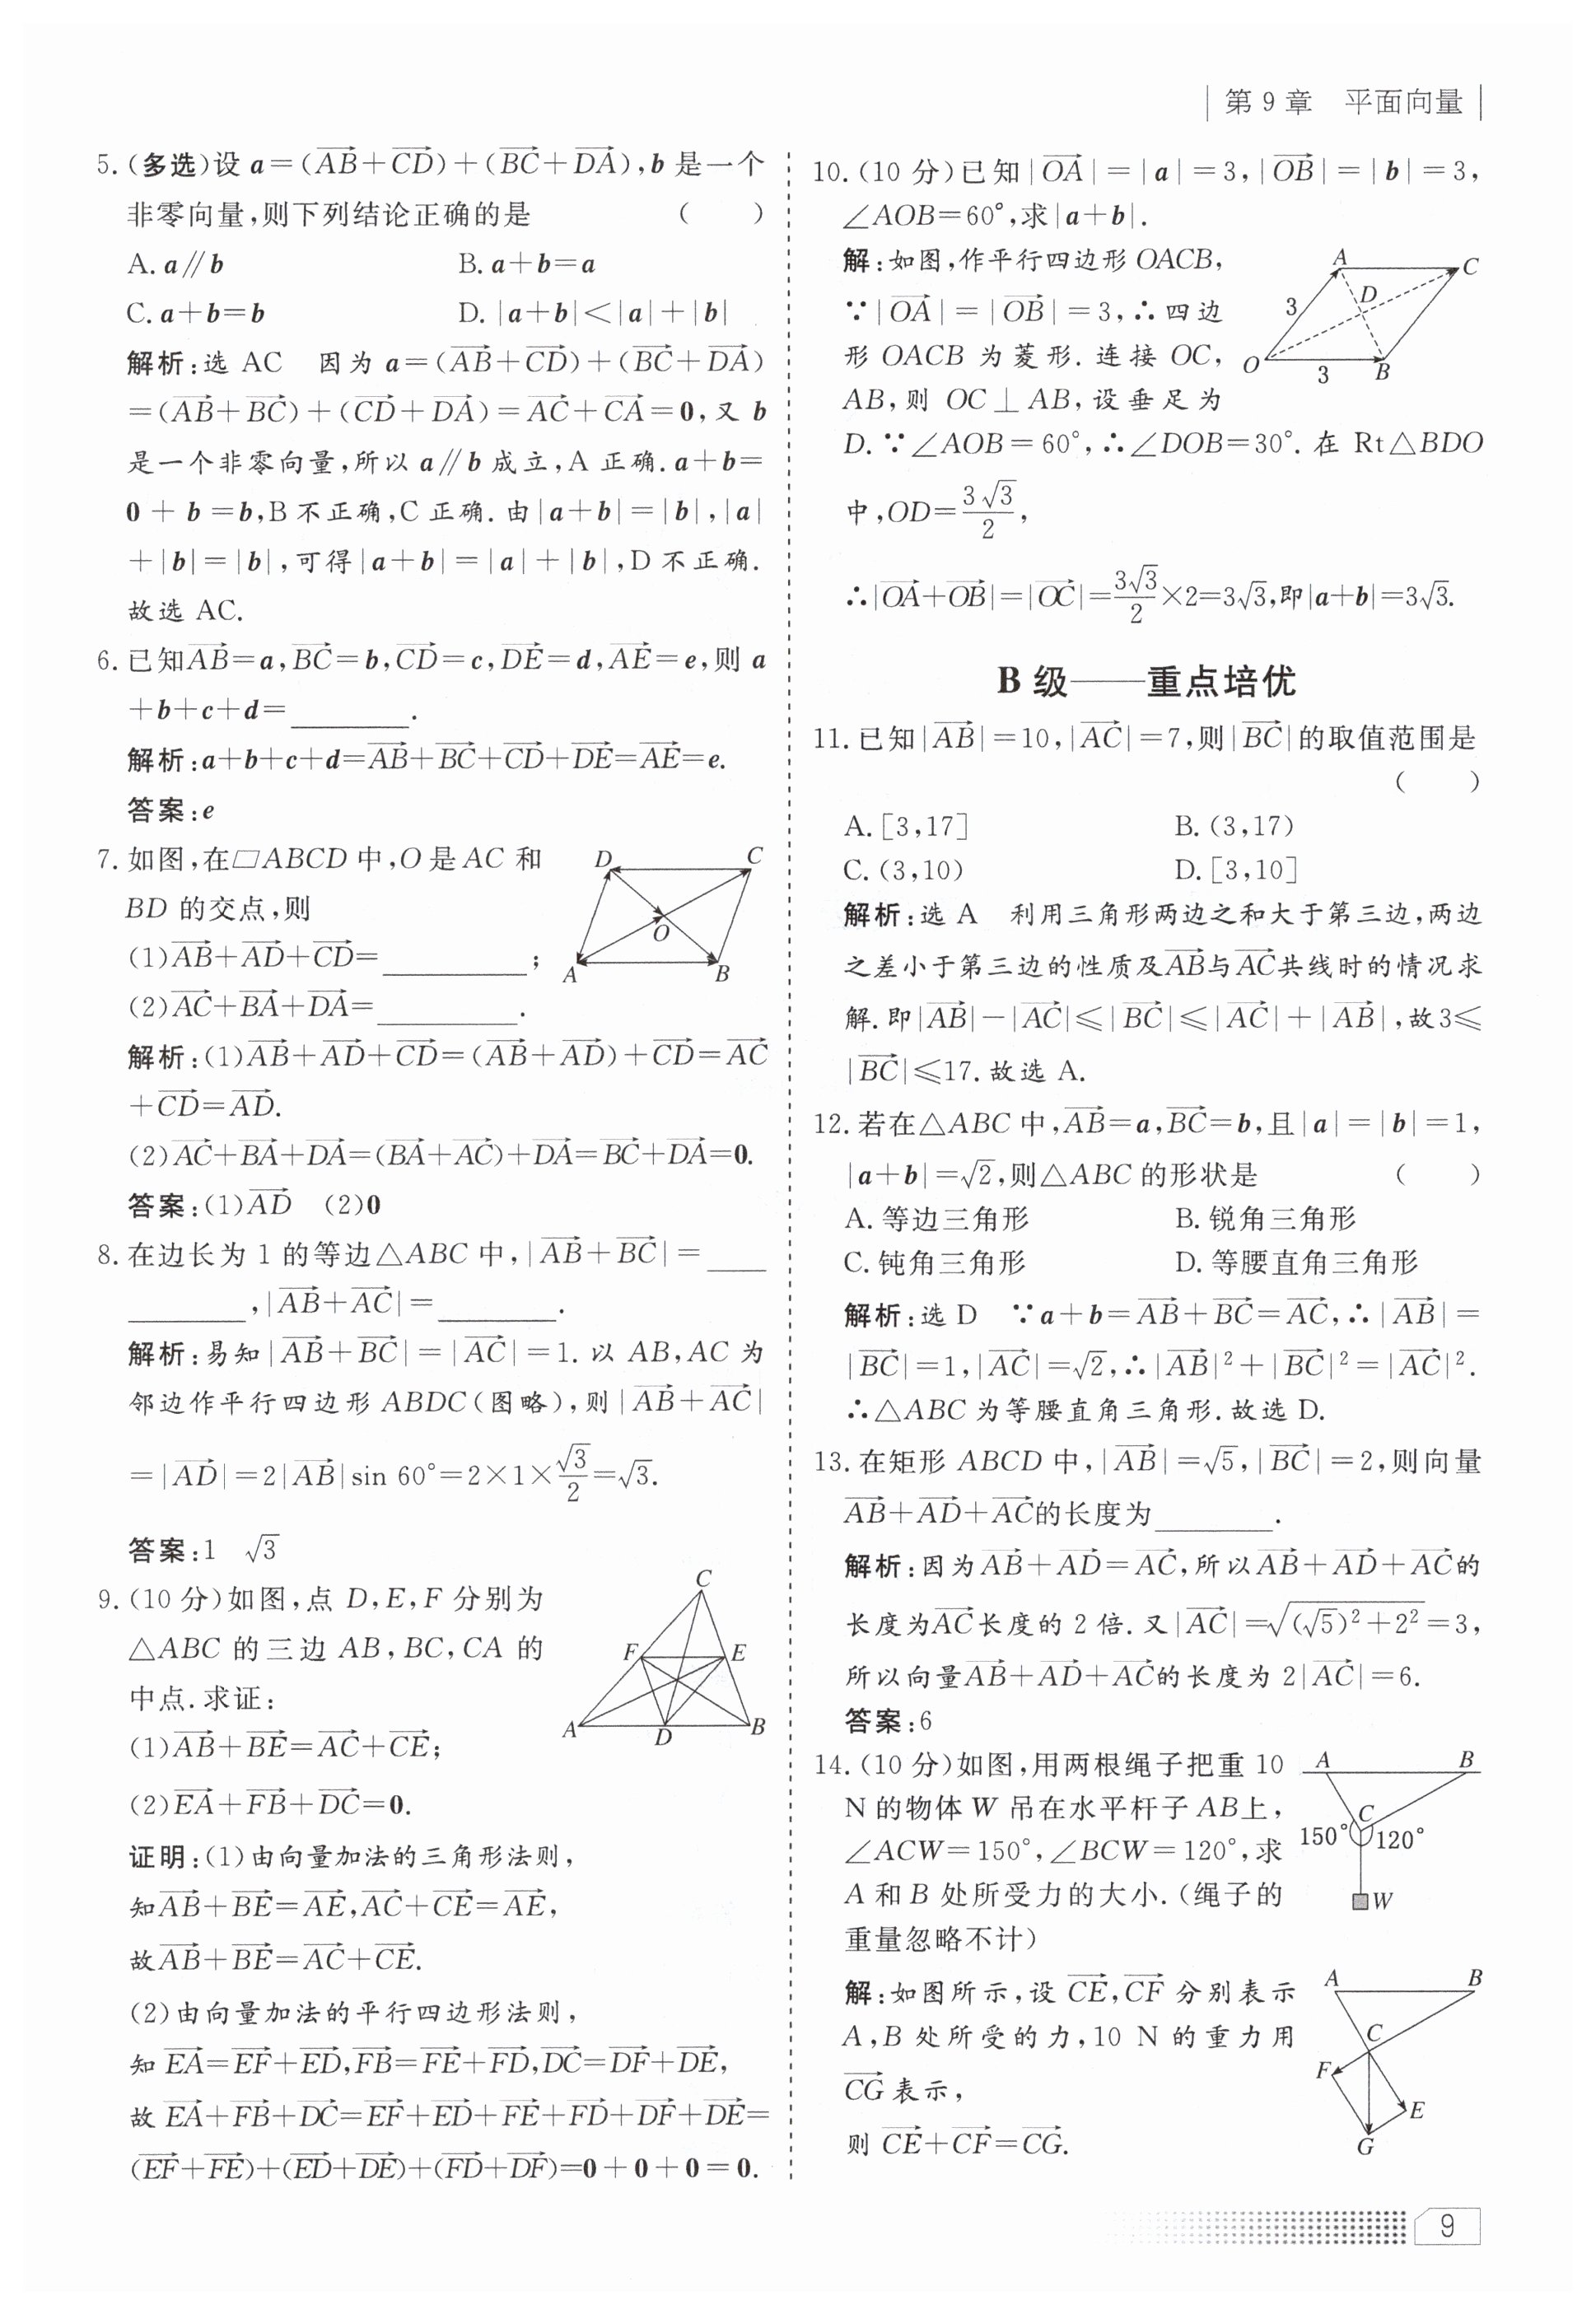 第 9 章 平面向量
5. (多选)设 a=(AB→+CD→)+(BC→+DA→),b 是一个
非零向量,则下列结论正确的是 ( )
A. a∥b B. a+b=a
C. a+b=b D. |a+b|<|a|+|b|
解析:选 AC 因为 a=(AB→+CD→)+(BC→+DA→)
=(AB→+BC→)+(CD→+DA→)=AC→+CA→=0,又 b
是一个非零向量,所以 a∥b 成立,A 正确. a+b=
0+b=b,B 不正确,C 正确. 由|a+b|=|b|,|a|
+|b|=|b|,可得|a+b|=|a|+|b|,D 不正确.
故选 AC.
6. 已知AB→=a,BC→=b,CD→=c,DE→=d,AE→=e,则 a
+b+c+d=________.
解析:a+b+c+d=AB→+BC→+CD→+DE→=AE→=e.
答案:e
7. 如图,在▱ABCD 中,O 是 AC 和
BD 的交点,则
(1)AB→+AD→+CD→=__________;
(2)AC→+BA→+DA→=__________.
D C O A B
解析:(1)AB→+AD→+CD→=(AB→+AD→)+CD→=AC→
+CD→=AD→.
(2)AC→+BA→+DA→=(BA→+AC→)+DA→=BC→+DA→=0.
答案:(1)AD→ (2)0
8. 在边长为 1 的等边△ABC 中,|AB→+BC→|=____
________,|AB→+AC→|=________.
解析:易知|AB→+BC→|=|AC→|=1. 以 AB,AC 为
邻边作平行四边形 ABDC(图略),则|AB→+AC→|
=|AD→|=2|AB→|sin 60°=2×1×√3/2=√3.
答案:1 √3
9. (10 分)如图,点 D,E,F 分别为
△ABC 的三边 AB,BC,CA 的
中点. 求证:
(1)AB→+BE→=AC→+CE→;
(2)EA→+FB→+DC→=0.
C F E A D B
证明:(1)由向量加法的三角形法则,
知AB→+BE→=AE→,AC→+CE→=AE→,
故AB→+BE→=AC→+CE→.
(2)由向量加法的平行四边形法则,
知 EA→=EF→+ED→,FB→=FE→+FD→,DC→=DF→+DE→,
故 EA→+FB→+DC→=EF→+ED→+FE→+FD→+DF→+DE→=
(EF→+FE→)+(ED→+DE→)+(FD→+DF→)=0+0+0=0.
10. (10 分)已知|OA→|=|a|=3,|OB→|=|b|=3,
∠AOB=60°,求|a+b|.
解:如图,作平行四边形 OACB,
∵|OA→|=|OB→|=3,∴四边
形 OACB 为菱形. 连接 OC,
AB,则 OC⊥AB,设垂足为
D. ∵∠AOB=60°,∴∠DOB=30°. 在 Rt△BDO
中,OD=3√3/2,
A C 3 D O 3 B
∴|OA→+OB→|=|OC→|=3√3/2×2=3√3,即|a+b|=3√3.
B 级——重点培优
11. 已知|AB→|=10,|AC→|=7,则|BC→|的取值范围是
( )
A. [3,17] B. (3,17)
C. (3,10) D. [3,10]
解析:选 A 利用三角形两边之和大于第三边,两边
之差小于第三边的性质及AB→与AC→共线时的情况求
解. 即|AB→|-|AC→|≤|BC→|≤|AC→|+|AB→|,故3≤
|BC→|≤17. 故选 A.
12. 若在△ABC 中,AB→=a,BC→=b,且|a|=|b|=1,
|a+b|=√2,则△ABC 的形状是 ( )
A. 等边三角形 B. 锐角三角形
C. 钝角三角形 D. 等腰直角三角形
解析:选 D ∵a+b=AB→+BC→=AC→,∴|AB→|=
|BC→|=1,|AC→|=√2,∴|AB→|²+|BC→|²=|AC→|².
∴△ABC 为等腰直角三角形. 故选 D.
13. 在矩形 ABCD 中,|AB→|=√5,|BC→|=2,则向量
AB→+AD→+AC→的长度为________.
解析:因为AB→+AD→=AC→,所以AB→+AD→+AC→的
长度为AC→长度的 2 倍. 又|AC→|=√((√5)²+2²)=3,
所以向量AB→+AD→+AC→的长度为 2|AC→|=6.
答案:6
14. (10 分)如图,用两根绳子把重 10
N 的物体 W 吊在水平杆子 AB上,
∠ACW=150°,∠BCW=120°,求
A 和 B 处所受力的大小. (绳子的
重量忽略不计)
A B C 150° 120° W
解:如图所示,设 CE→,CF→ 分别表示
A,B 处所受的力,10 N 的重力用
CG→ 表示,
则 CE→+CF→=CG→.
A B C F E G
9